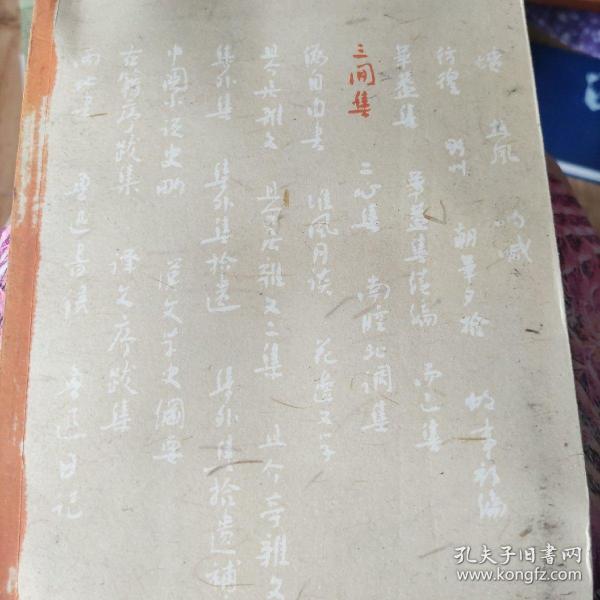 墳 热风 呐喊
彷徨 野草 朝華夕拾 故事新编
華盖集 華盖集续编 而已集
三闲集 二心集 南腔北调集
伪自由书 准风月谈 花边文学
且介亭雜文 且介亭雜文二集 且介亭雜文
集外集 集外集拾遗 集外集拾遗補
中國小说史略 汉文学史綱要
古籍序跋集 译文序跋集
两地书 鲁迅書信 鲁迅日记
孔夫子旧书网
www.kongfz.com